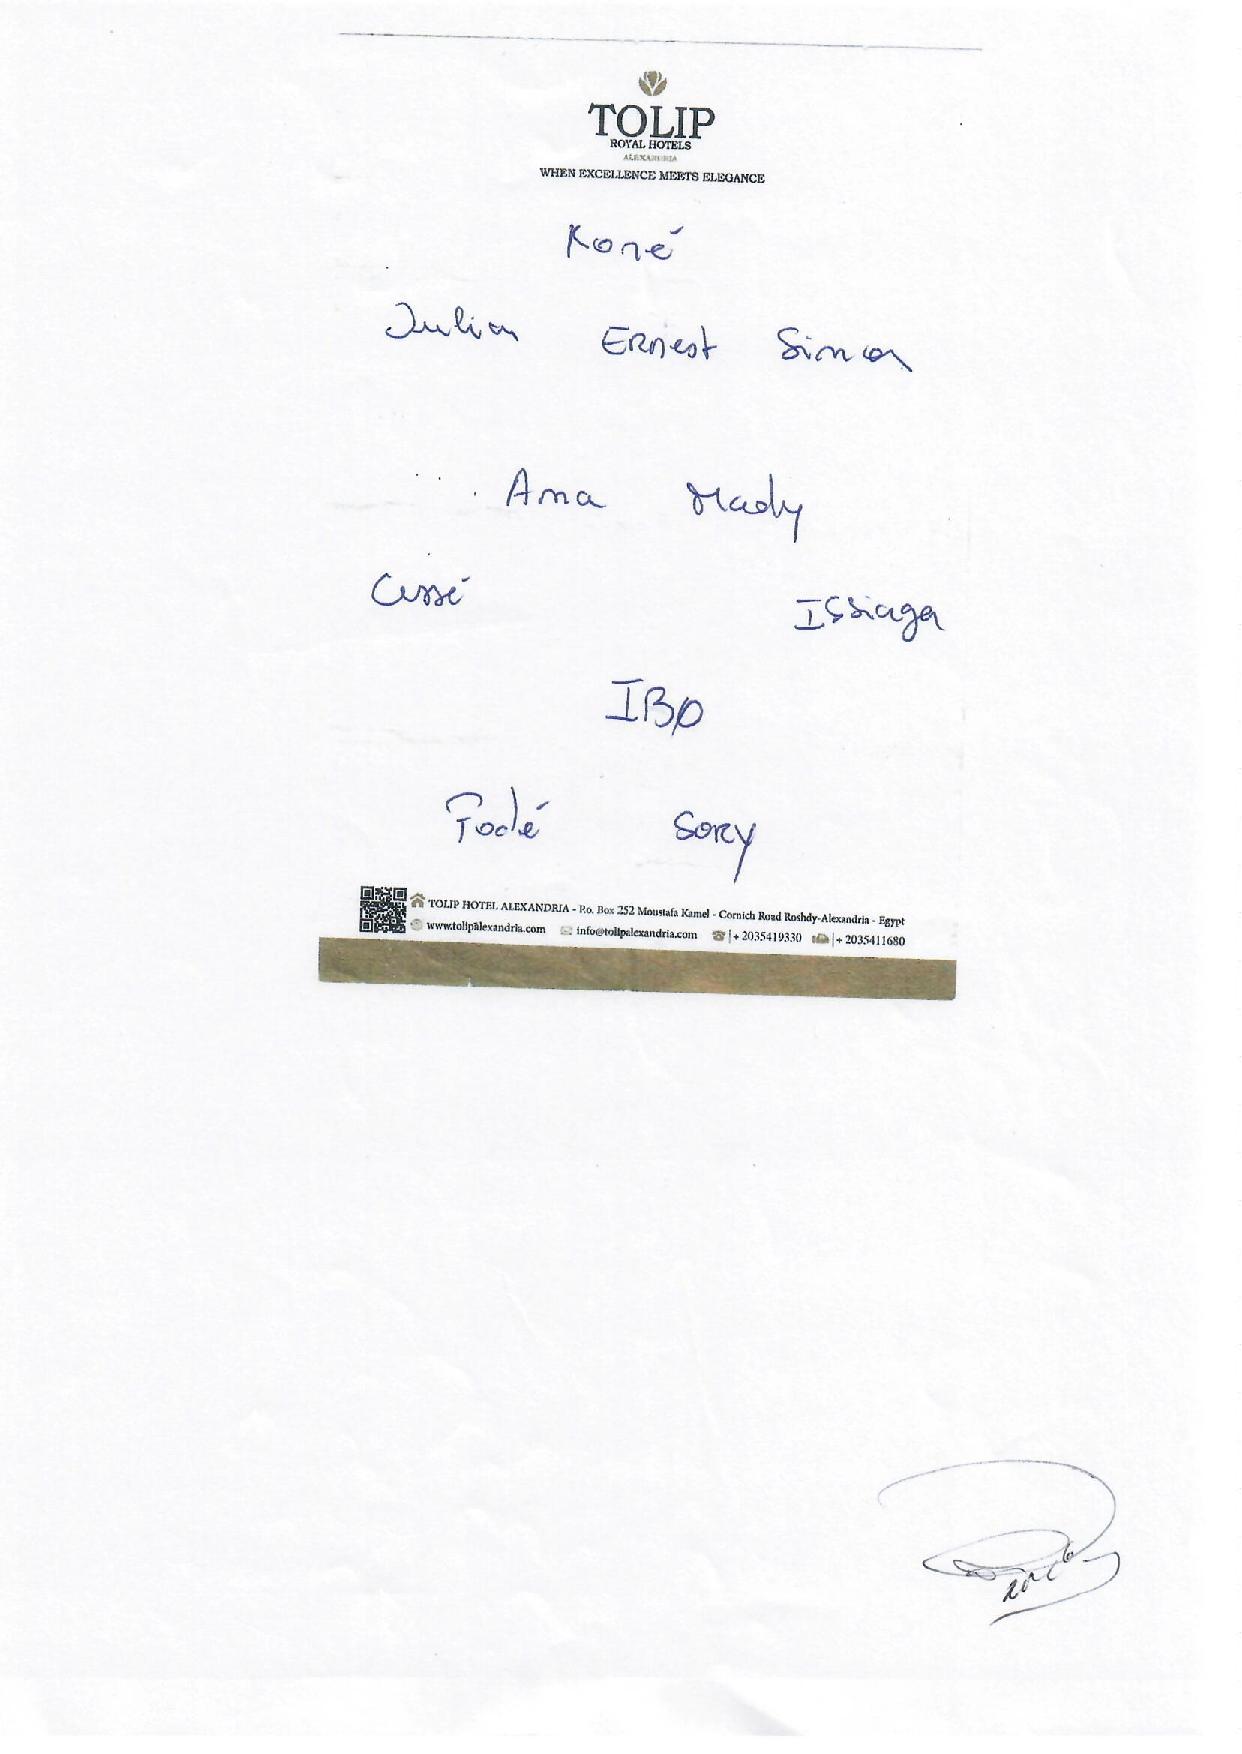 TOLIP
ROYAL HOTELS
ALEXANDRIA
WHEN EXCELLENCE MEETS ELEGANCE
Koné
Julian Ernest Simon
Ama Mady
Cissé Issiaga
IBO
Fodé Sory
TOLIP HOTEL ALEXANDRIA - P.o. Box 252 Moustafa Kamel - Cornich Road Roshdy-Alexandria - Egypt
www.tolipalexandria.com info@tolipalexandria.com | + 2035419330 | + 2035411680